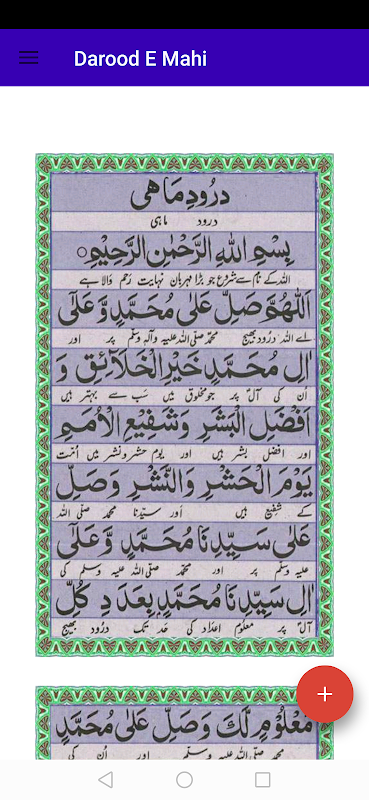 Darood E Mahi
درُودِ مَاهِی
درود ماہی
بِسْمِ اللّٰهِ الرَّحْمٰنِ الرَّحِيْمِ○
اللہ کے نام سے شروع جو بڑا مہربان نہایت رحم والا ہے
اَللّٰهُمَّ صَلِّ عَلٰى مُحَمَّدٍ وَّعَلٰٓى
اے اللہ درود بھیج محمد صلی اللہ علیہ وآلہٖ وسلم پر اور
اٰلِ مُحَمَّدٍ خَيْرِ الْخَلَآئِقِ وَ
ان کی آل پر جو مخلوق میں سب سے بہتر ہیں
اَفْضَلِ الْبَشَرِ وَشَفِيْعِ الْاُمَمِ
اور افضل بشر ہیں اور یوم حشر و نشر میں اُمّت
يَوْمَ الْحَشْرِ وَالنَّشْرِ وَصَلِّ
کے شفیع ہیں اور سیّدنا محمد صلی اللہ
عَلٰى سَيِّدِنَا مُحَمَّدٍ وَّعَلٰٓى
علیہ وسلم پر اور محمد صلی اللہ علیہ وسلم کی
اٰلِ سَيِّدِنَا مُحَمَّدٍ بِعَدَدِ كُلِّ
آل پر معلوم اعداد کی حد تک درود بھیج
مَعْلُوْمٍ لَّكَ وَصَلِّ عَلٰى مُحَمَّدٍ
محمد صلی اللہ علیہ وسلم اور اُن کی